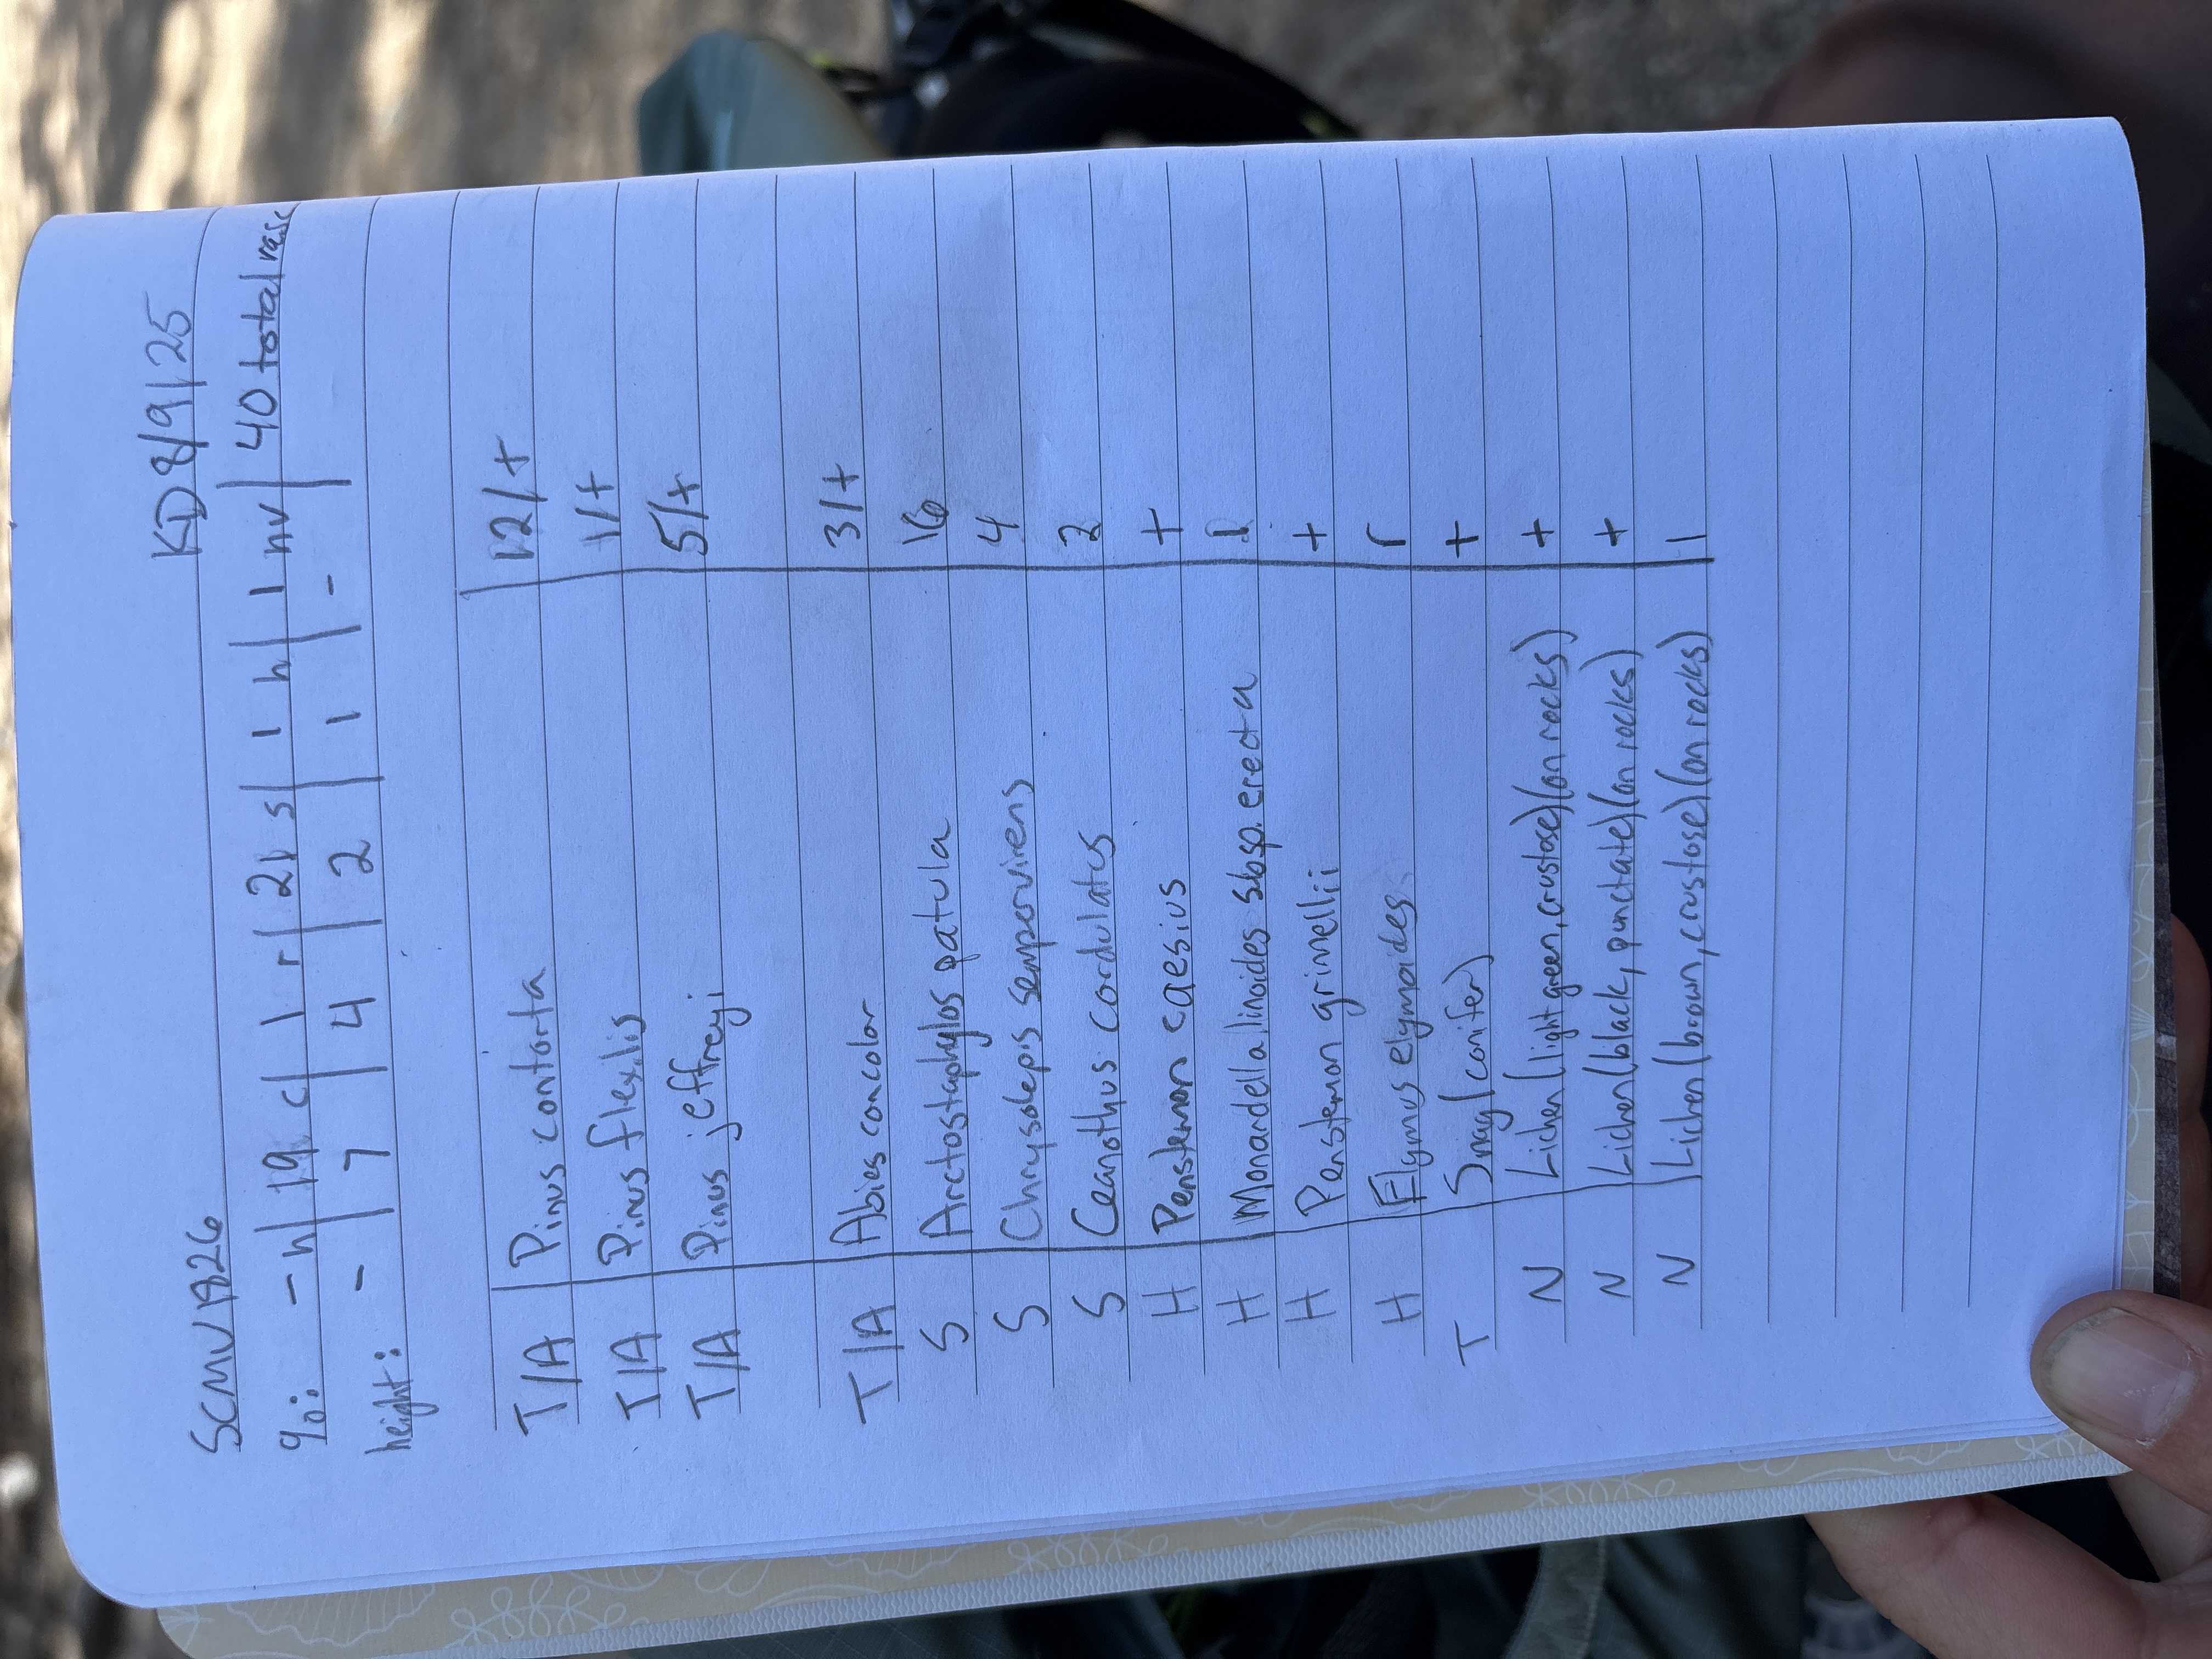 SCMV1826 KD 8/9/25
%: - h | 19 c | 1 r | 21 s | 1 h | 1 nv | 40 total vasc
height: - | 7 | 4 | 2 | 1 | -
T/A | Pinus contorta | 12/+
T/A | Pinus flexilis | 1/+
T/A | Pinus jeffreyi | 5/+
T/A | Abies concolor | 3/+
S | Arctostaphylos patula | 16
S | Chrysolepis sempervirens | 4
S | Ceanothus cordulatus | 2
H | Penstemon caesius | +
H | Monardella linoides sbsp. erecta | 1
H | Penstemon grinnellii | +
H | Elymus elymoides | r
T | Snag (conifer) | +
N | Lichen (light green, crustose) (on rocks) | +
N | Lichen (black, punctate) (on rocks) | +
N | Lichen (brown, crustose) (on rocks) | 1